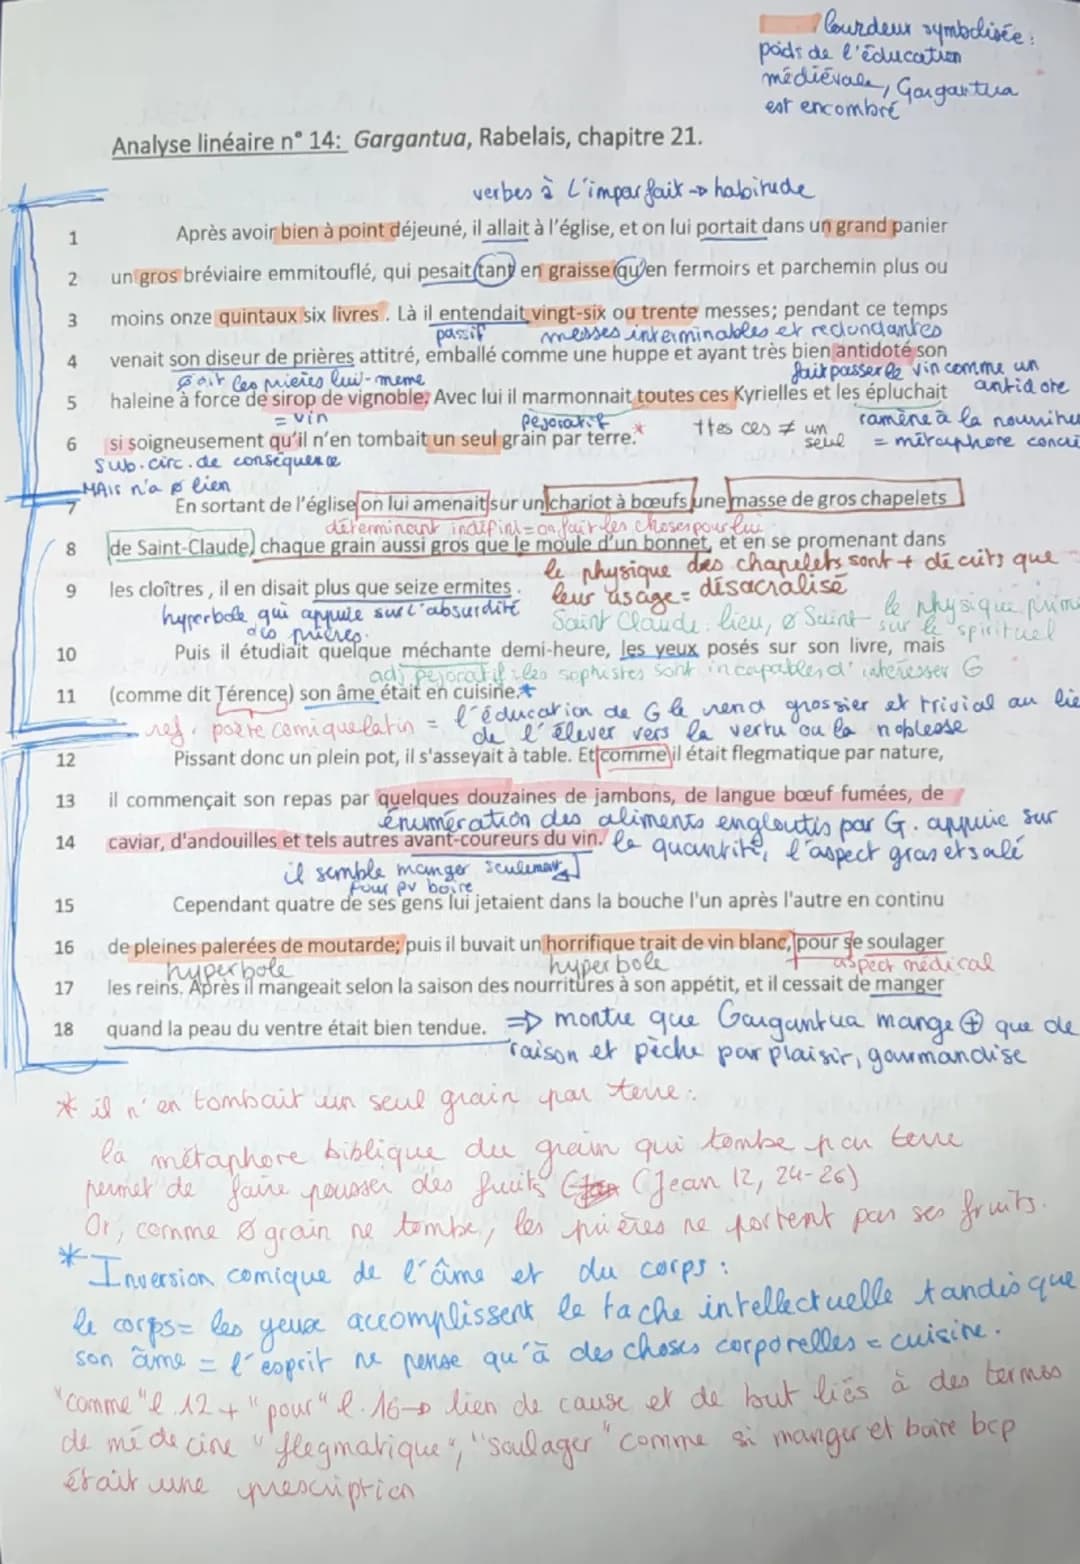 lourdeur symbolisée :
poids de l'éducation
médiévale, Gargantua
est encombré
Analyse linéaire n° 14: Gargantua, Rabelais, chapitre 21.
verbes à l'imparfait → habitude
1 Après avoir bien à point déjeuné, il allait à l'église, et on lui portait dans un grand panier
2 un gros bréviaire emmitouflé, qui pesait tant en graisse qu'en fermoirs et parchemin plus ou
3 moins onze quintaux six livres. Là il entendait vingt-six ou trente messes; pendant ce temps
passif messes interminables et redondantes
4 venait son diseur de prières attitré, emballé comme une huppe et ayant très bien antidoté son
Ø dit les prières lui-même fait passer le vin comme un antidote
5 haleine à force de sirop de vignoble. Avec lui il marmonnait toutes ces Kyrielles et les épluchait
= vin péjoratif ttes ces ≠ un seul ramène à la nourritu
6 si soigneusement qu'il n'en tombait un seul grain par terre.*
= métaphore
sub. circ. de conséquence
MAIS n'a Ø lien
7 En sortant de l'église on lui amenait sur un chariot à bœufs une masse de gros chapelets
déterminant indéfini = on fait les choses pour lui
8 de Saint-Claude, chaque grain aussi gros que le moule d'un bonnet, et en se promenant dans
le physique des chapelets sont + décrits que
9 les cloîtres , il en disait plus que seize ermites.
leur usage = désacralisé
hyperbole qui appuie sur l'absurdité
des prières.
Saint Claude : lieu, Ø Saint le physique prime
sur le spirituel
10 Puis il étudiait quelque méchante demi-heure, les yeux posés sur son livre, mais
adj péjoratif : les sophistes sont incapables d'intéresser G
11 (comme dit Térence) son âme était en cuisine.*
ref. poète comique latin = l'éducation de G le rend grossier et trivial au lie
de l'élever vers la vertu ou la noblesse
12 Pissant donc un plein pot, il s'asseyait à table. Et comme il était flegmatique par nature,
13 il commençait son repas par quelques douzaines de jambons, de langue bœuf fumées, de
énumération des aliments engloutis par G. appuie sur
14 caviar, d'andouilles et tels autres avant-coureurs du vin.
la quantité, l'aspect gras et salé
il semble manger seulement
pour pv boire
15 Cependant quatre de ses gens lui jetaient dans la bouche l'un après l'autre en continu
16 de pleines palerées de moutarde; puis il buvait un horrifique trait de vin blanc, pour se soulager
hyperbole hyperbole aspect médical
17 les reins. Après il mangeait selon la saison des nourritures à son appétit, et il cessait de manger
18 quand la peau du ventre était bien tendue.
⇒ montre que Gargantua mange ⊕ que de
raison et pèche par plaisir, gourmandise
* il n'en tombait un seul grain par terre :
la métaphore biblique du grain qui tombe par terre
permet de faire pousser des fruits (Jean 12, 24-26)
Or, comme Ø grain ne tombe, les prières ne portent pas ses fruits.
* Inversion comique de l'âme et du corps :
le corps = les yeux accomplissent la tache intellectuelle tandis que
son âme = l'esprit ne pense qu'à des choses corporelles = cuisine.
"comme" l.12 + "pour" l.16 → lien de cause et de but liés à des termes
de médecine "flegmatique", "soulager" comme si manger et boire bcp
était une prescription